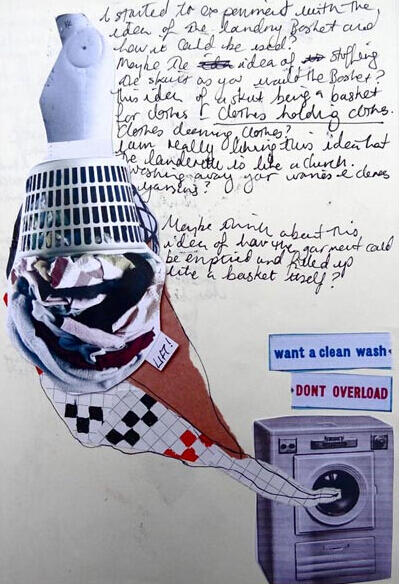 I started to experiment with the
idea of the landry Basket and
how it could be used?
Maybe the idea of stuffing
the skirt as you would the Basket?
this idea of a skirt being a basket
for clothes / clothes holding clothes.
Clothes cleaning clothes?
I am really liking this idea that
the landerette is like a church.
washing away your worries & clenes
Maybe think about this
idea of how the garment could
be emptied and filled up
like a basket itself?
LIFT!
want a clean wash
DONT OVERLOAD